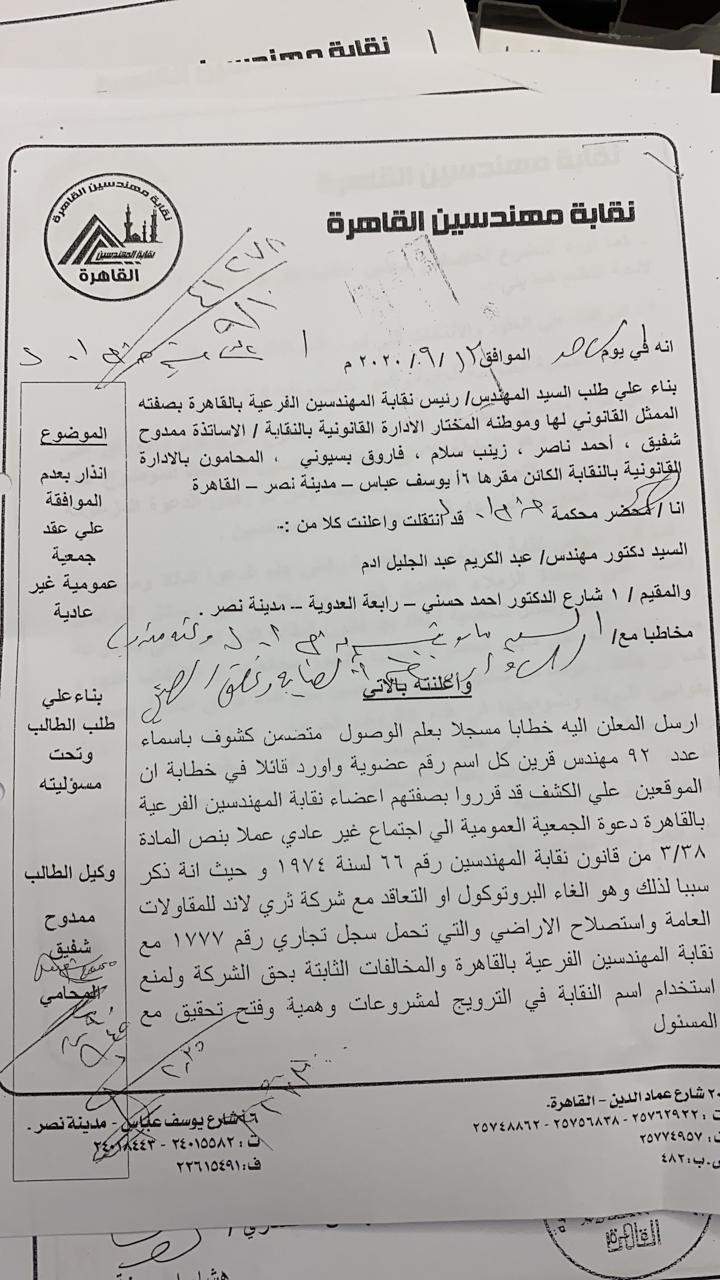 نقابة مهندسين
نقابة مهندسين القاهرة
نقابة مهندسين القاهرة
نقابة المهندسين
القاهرة
٤١٢٧٨
٩/١٠
انه في يوم الموافق ١٢ / ٩ / ٢٠٢٠ م
بناء علي طلب السيد المهندس/ رئيس نقابة المهندسين الفرعية بالقاهرة بصفته
الممثل القانوني لها وموطنه المختار الادارة القانونية بالنقابة / الاساتذة ممدوح
شفيق ، أحمد ناصر ، زينب سلام ، فاروق بسيوني ، المحامون بالادارة
القانونية بالنقابة الكائن مقرها ٦أ يوسف عباس – مدينة نصر – القاهرة
انا / محضر محكمة قد انتقلت واعلنت كلا من :-
السيد دكتور مهندس/ عبد الكريم عبد الجليل ادم
والمقيم / ١ شارع الدكتور احمد حسني – رابعة العدوية – مدينة نصر .
مخاطبا مع/
واعلنته بالاتي
ارسل المعلن اليه خطابا مسجلا بعلم الوصول متضمن كشوف باسماء
عدد ٩٢ مهندس قرين كل اسم رقم عضوية واورد قائلا في خطابة ان
الموقعين علي الكشف قد قرروا بصفتهم اعضاء نقابة المهندسين الفرعية
بالقاهرة دعوة الجمعية العمومية الي اجتماع غير عادي عملا بنص المادة
٣/٣٨ من قانون نقابة المهندسين رقم ٦٦ لسنة ١٩٧٤ و حيث انة ذكر
سببا لذلك وهو الغاء البروتوكول او التعاقد مع شركة ثري لاند للمقاولات
العامة واستصلاح الاراضي والتي تحمل سجل تجاري رقم ١٧٧٧ مع
نقابة المهندسين الفرعية بالقاهرة والمخالفات الثابتة بحق الشركة ولمنع
استخدام اسم النقابة في الترويج لمشروعات وهمية وفتح تحقيق مع
المسئول
الموضوع
انذار بعدم
الموافقة
علي عقد
جمعية
عمومية غير
عادية
بناء علي
طلب الطالب
وتحت
مسؤليته
وكيل الطالب
ممدوح
شفيق
المحامي
شارع عماد الدين - القاهرة.
ت : ٢٥٧٦٢٩٢٢ - ٢٥٧٥٦٨٣٨ - ٢٥٧٤٨٨٦٢
٢٥٧٧٤٩٥٧
ص.ب: ٤٨٢
شارع يوسف عباس - مدينة نصر .
ت : ٢٤٠١٥٥٨٢ - ٢٤٠١٨٤٤٣
ف: ٢٢٦١٥٤٩١
القاهرة